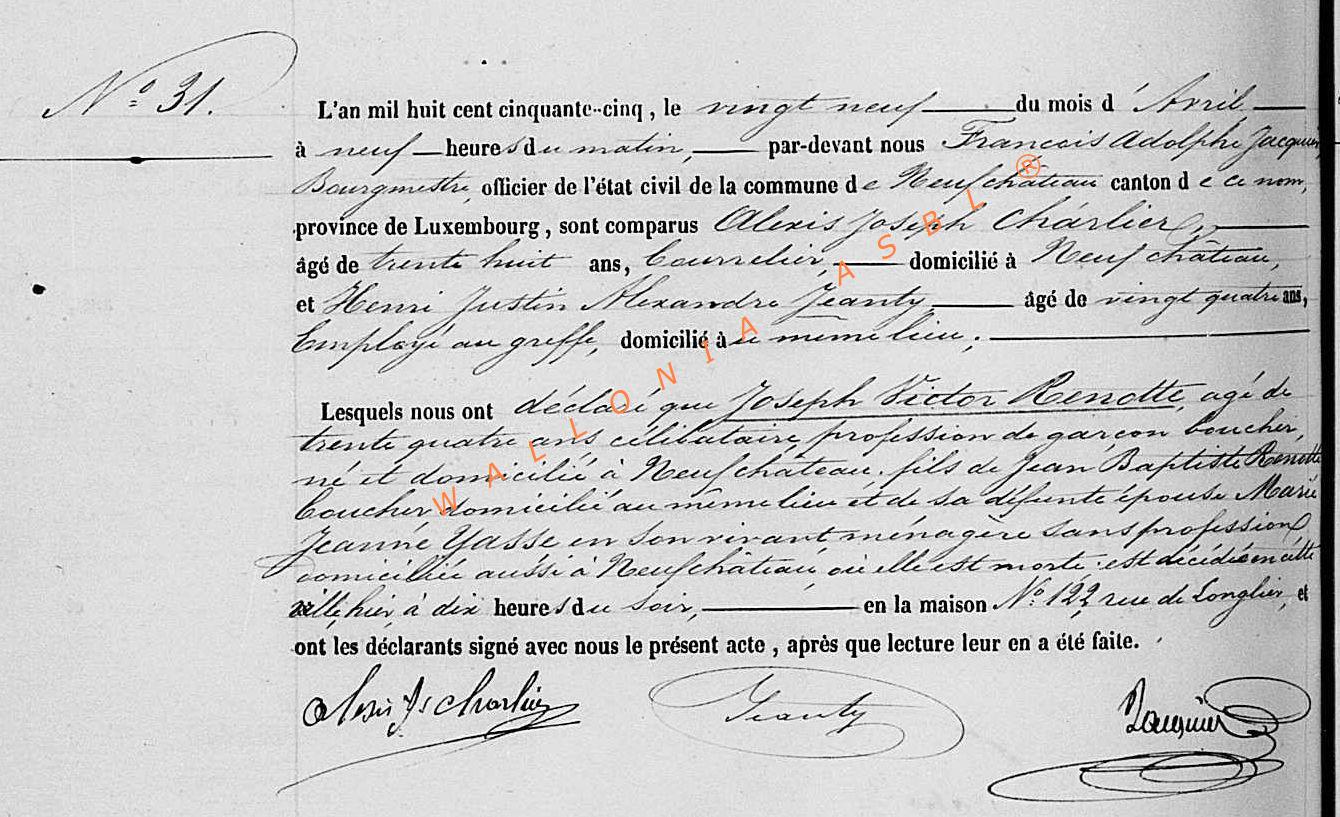 N° 31.
L'an mil huit cent cinquante-cinq, le vingt neuf du mois d'Avril
à neuf heures du matin, par-devant nous François Adolphe Jacquier,
Bourgmestre, officier de l'état civil de la commune de Neufchâteau canton de ce nom,
province de Luxembourg, sont comparus Alexis Joseph Charlier,
âgé de trente huit ans, Bourrelier, domicilié à Neufchâteau,
et Henri Justin Alexandre Jeanty âgé de vingt quatre ans,
Employé au greffe, domicilié à même lieu;
Lesquels nous ont déclaré que Joseph Victor Renotte, agé de
trente quatre ans célibataire, profession de garçon boucher,
né et domicilié à Neufchâteau, fils de Jean Baptiste Renotte
boucher domicilié au même lieu et de sa défunte épouse Marie
Jeanne Yasse en son vivant ménagère sans profession
domiciliée aussi à Neufchâteau, où elle est morte. est décédé en cette
ville, hier, à dix heures du soir, en la maison N° 122 rue de Longlier, et
ont les déclarants signé avec nous le présent acte, après que lecture leur en a été faite.
Alexis Js Charlier Jeanty Jacquier
WALLONIA ASBL ®